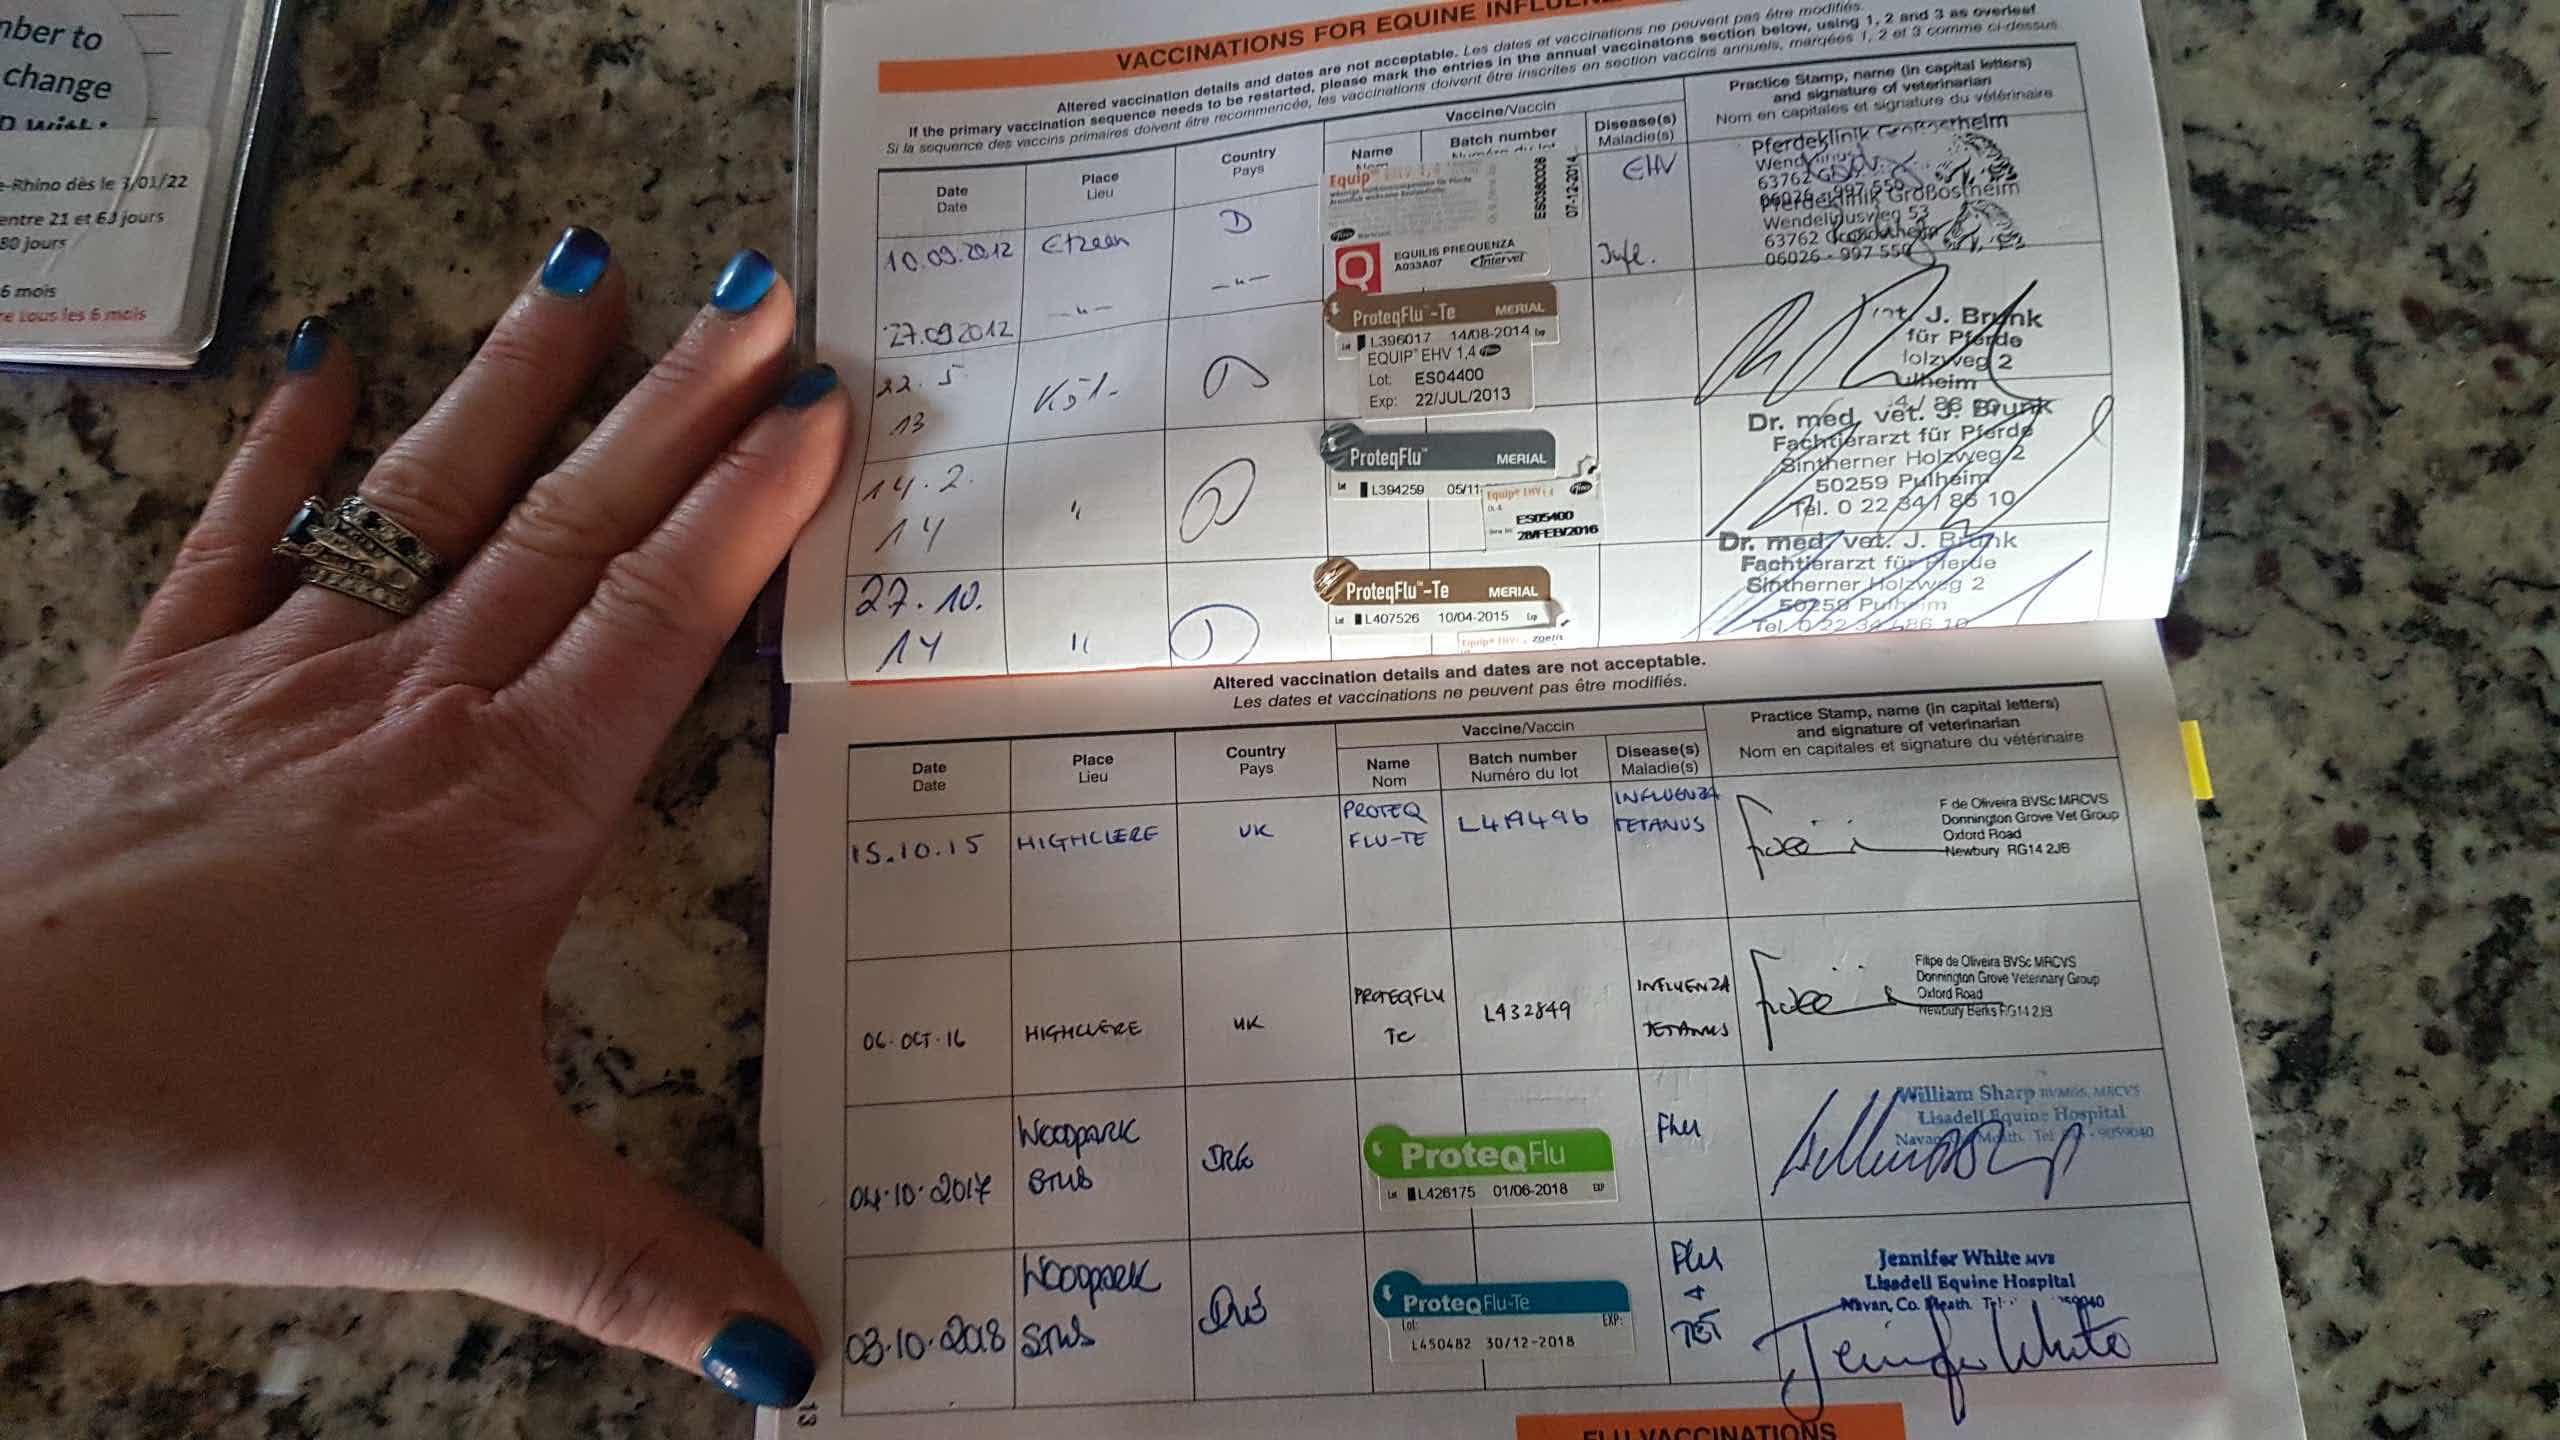 mber to
change
-Rhino dès le 3/01/22
entre 21 et 63 jours
80 jours
6 mois
re tous les 6 mois
VACCINATIONS FOR EQUINE
Altered vaccination details and dates are not acceptable. Les dates et vaccinations ne peuvent pas être modifiés.
If the primary vaccination sequence needs to be restarted, please mark the entries in the annual vaccinatons section below, using 1, 2 and 3 as overleaf.
Si la sequence des vaccins primaires doivent être recommencée, les vaccinations doivent être inscrites en section vaccins annuels, marqées 1, 2 et 3 comme ci-dessus
Date
Date
Place
Lieu
Country
Pays
Vaccine/Vaccin
Name
Batch number
Disease(s)
Maladie(s)
Practice Stamp, name (in capital letters)
and signature of veterinarian
Nom en capitales et signature du vétérinaire
10.09.2012
D
Equip
07-12-2014
EHV
Pferdeklinik
63762
Pferdeklinik Großostheim
Wendelinusweg 53
63762
06026 - 997 550
27.09.2012
EQUILIS PREQUENZA
A033A07 Intervet
Infl.
22. 5.
13
ProteqFlu™-Te MERIAL
Lot L396017 14/08-2014 Exp
EQUIP EHV 1,4
Lot: ES04400
Exp: 22/JUL/2013
J. Brunk
für Pferde
olzweg 2
ulheim
14. 2.
14
"
ProteqFlu™ MERIAL
Lot L394259 05/11
Equip EHV 1,4
ES05400
28/FEB/2016
Dr. med. vet. J. Brunk
Fachtierarzt für Pferde
Sintherner Holzweg 2
50259 Pulheim
Tel. 0 22 34 / 86 10
27. 10.
14
"
ProteqFlu™-Te MERIAL
Lot L407526 10/04-2015 Exp
Dr. med. vet. J. Brunk
Fachtierarzt für Pferde
Sintherner Holzweg 2
50259 Pulheim
Tel. 0 22 34 / 86 10
Altered vaccination details and dates are not acceptable.
Les dates et vaccinations ne peuvent pas être modifiés.
Date
Date
Place
Lieu
Country
Pays
Vaccine/Vaccin
Name
Nom
Batch number
Numéro du lot
Disease(s)
Maladie(s)
Practice Stamp, name (in capital letters)
and signature of veterinarian
Nom en capitales et signature du vétérinaire
15.10.15
HIGHCLERE
UK
PROTEQ
FLU-TE
INFLUENZA
TETANUS
F de Oliveira BVSc MRCVS
Donnington Grove Vet Group
Oxford Road
Newbury RG14 2JB
06.OCT.16
HIGHCLERE
UK
PROTEQFLU
TE
L432849
INFLUENZA
TETANUS
Filipe de Oliveira BVSc MRCVS
Donnington Grove Veterinary Group
Oxford Road
Newbury Berks RG14 2JB
04.10.2017
WOODPARK
STUD
ProteqFlu
Lot L426175 01/06-2018 EXP
Flu
William Sharp BVM&S, MRCVS
Lisadell Equine Hospital
03.10.2018
WOODPARK
STUD
ProteqFlu-Te
Lot: EXP:
L450482 30/12-2018
Flu
+
TET
Jennifer White MVB
Lisadell Equine Hospital
Navan, Co. Meath.
Jennifer White
13
FLU VACCINATIONS